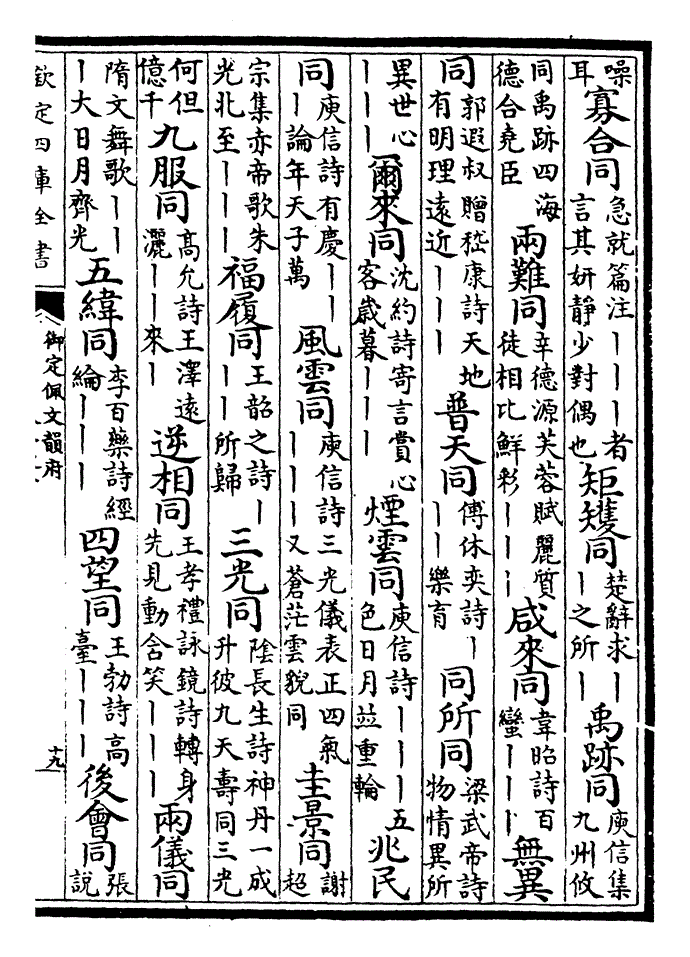 噪耳寡合同急就篇注｜｜｜者言其妍靜少對偶也矩矱同楚辭求｜｜之所｜禹跡同庾信集九州攸
同禹跡四海德合堯臣兩難同辛德源芙蓉賦麗質徒相比鮮彩｜｜｜咸來同韋昭詩百蠻｜｜｜無異
同郭遐叔贈嵇康詩天地有明理遠近｜｜｜普天同傅休奕詩｜｜｜樂育同所同梁武帝詩物情異所
異世心｜｜｜爾來同沈約詩寄言賞心客歲暮｜｜｜煙雲同庾信詩｜｜｜五色日月並重輪兆民
同庾信詩有慶｜｜｜論年天子萬風雲同庾信詩三光儀表正四氣｜｜｜又蒼茫雲貌同圭景同謝超
宗集赤帝歌朱光北至｜｜｜福履同王韶之詩｜｜所歸｜三光同陰長生詩神丹一成升彼九天壽同三光
何但億千九服同高允詩王澤遠灑｜｜來｜逆相同王孝禮詠鏡詩轉身先見動含笑｜｜｜兩儀同
隋文舞歌｜｜｜大日月齊光五緯同李百藥詩經綸｜｜｜四望同王勃詩高臺｜｜｜後會同張說
欽定四庫全書
御定佩文韻府
十九